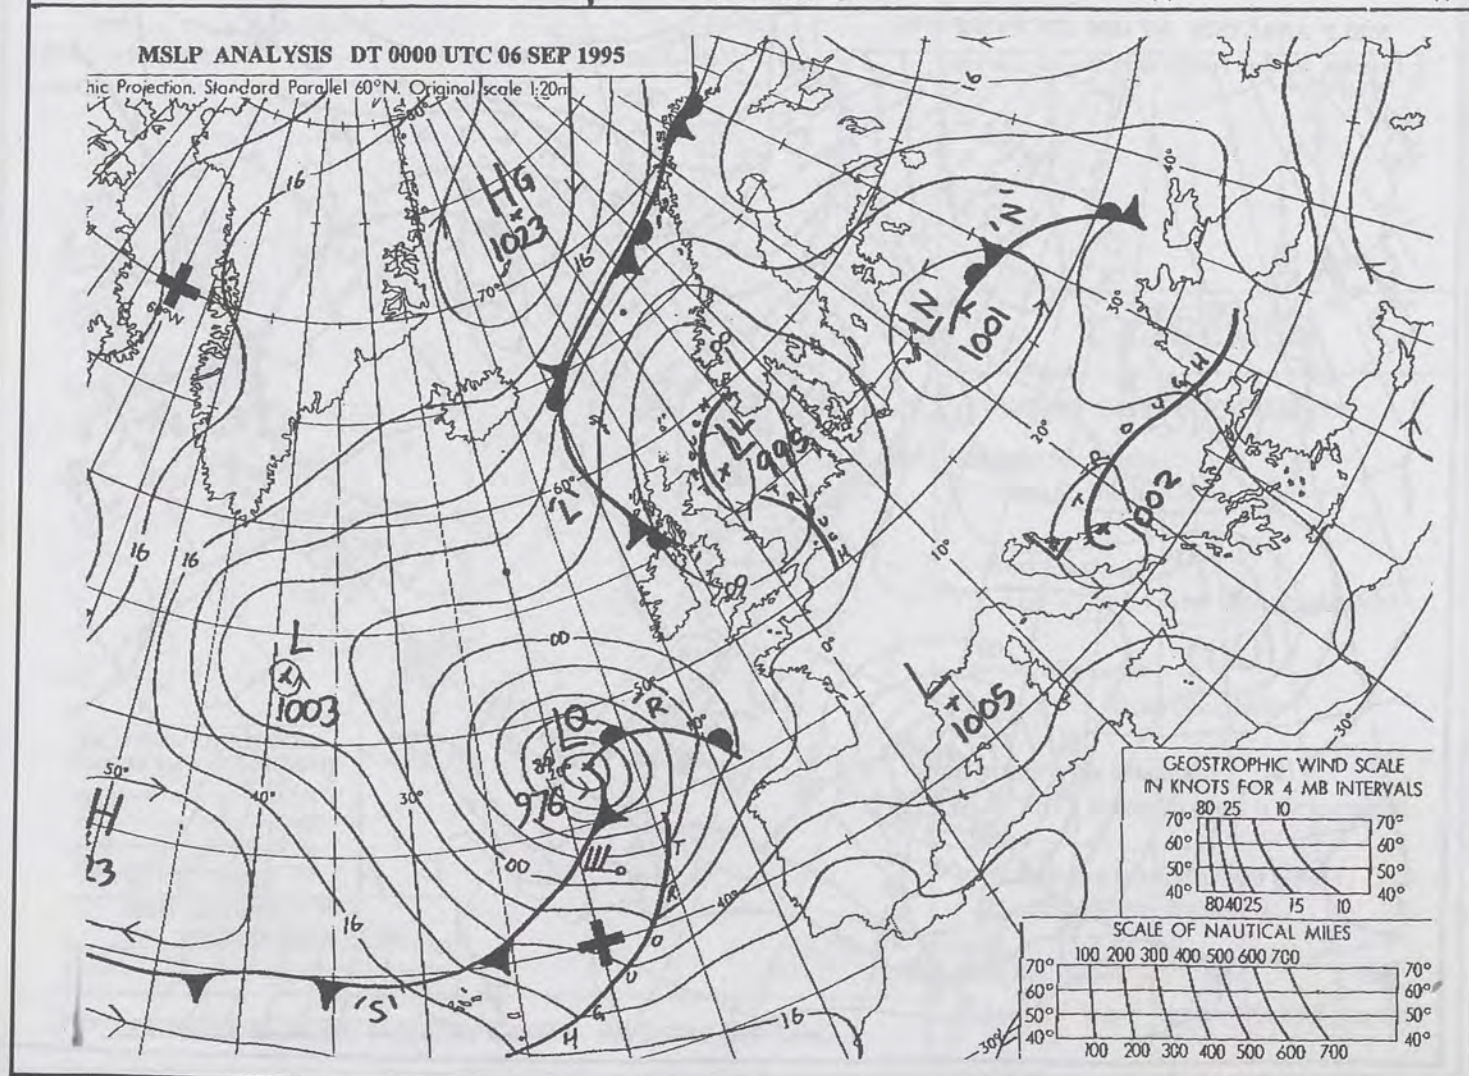 MSLP ANALYSIS DT 0000 UTC 06 SEP 1995
hic Projection. Standard Parallel 60°N. Original scale 1:20m
16
16
40°
HG
1023
16
70°
'N'
LN
1001
30°
20°
L
995
'Z'
60°
16
16
TROUGH
1002
L
10°
TROUGH
00
0°
L
1003
L
1005
50°
'R'
40°
LQ
976
50°
40°
30°
H
23
00
40°
TROUGH
16
'S'
16
30°
30°
GEOSTROPHIC WIND SCALE
IN KNOTS FOR 4 MB INTERVALS
80 25 10
70° 70°
60° 60°
50° 50°
40° 40°
80 40 25 15 10
SCALE OF NAUTICAL MILES
100 200 300 400 500 600 700
70° 70°
60° 60°
50° 50°
40° 40°
100 200 300 400 500 600 700